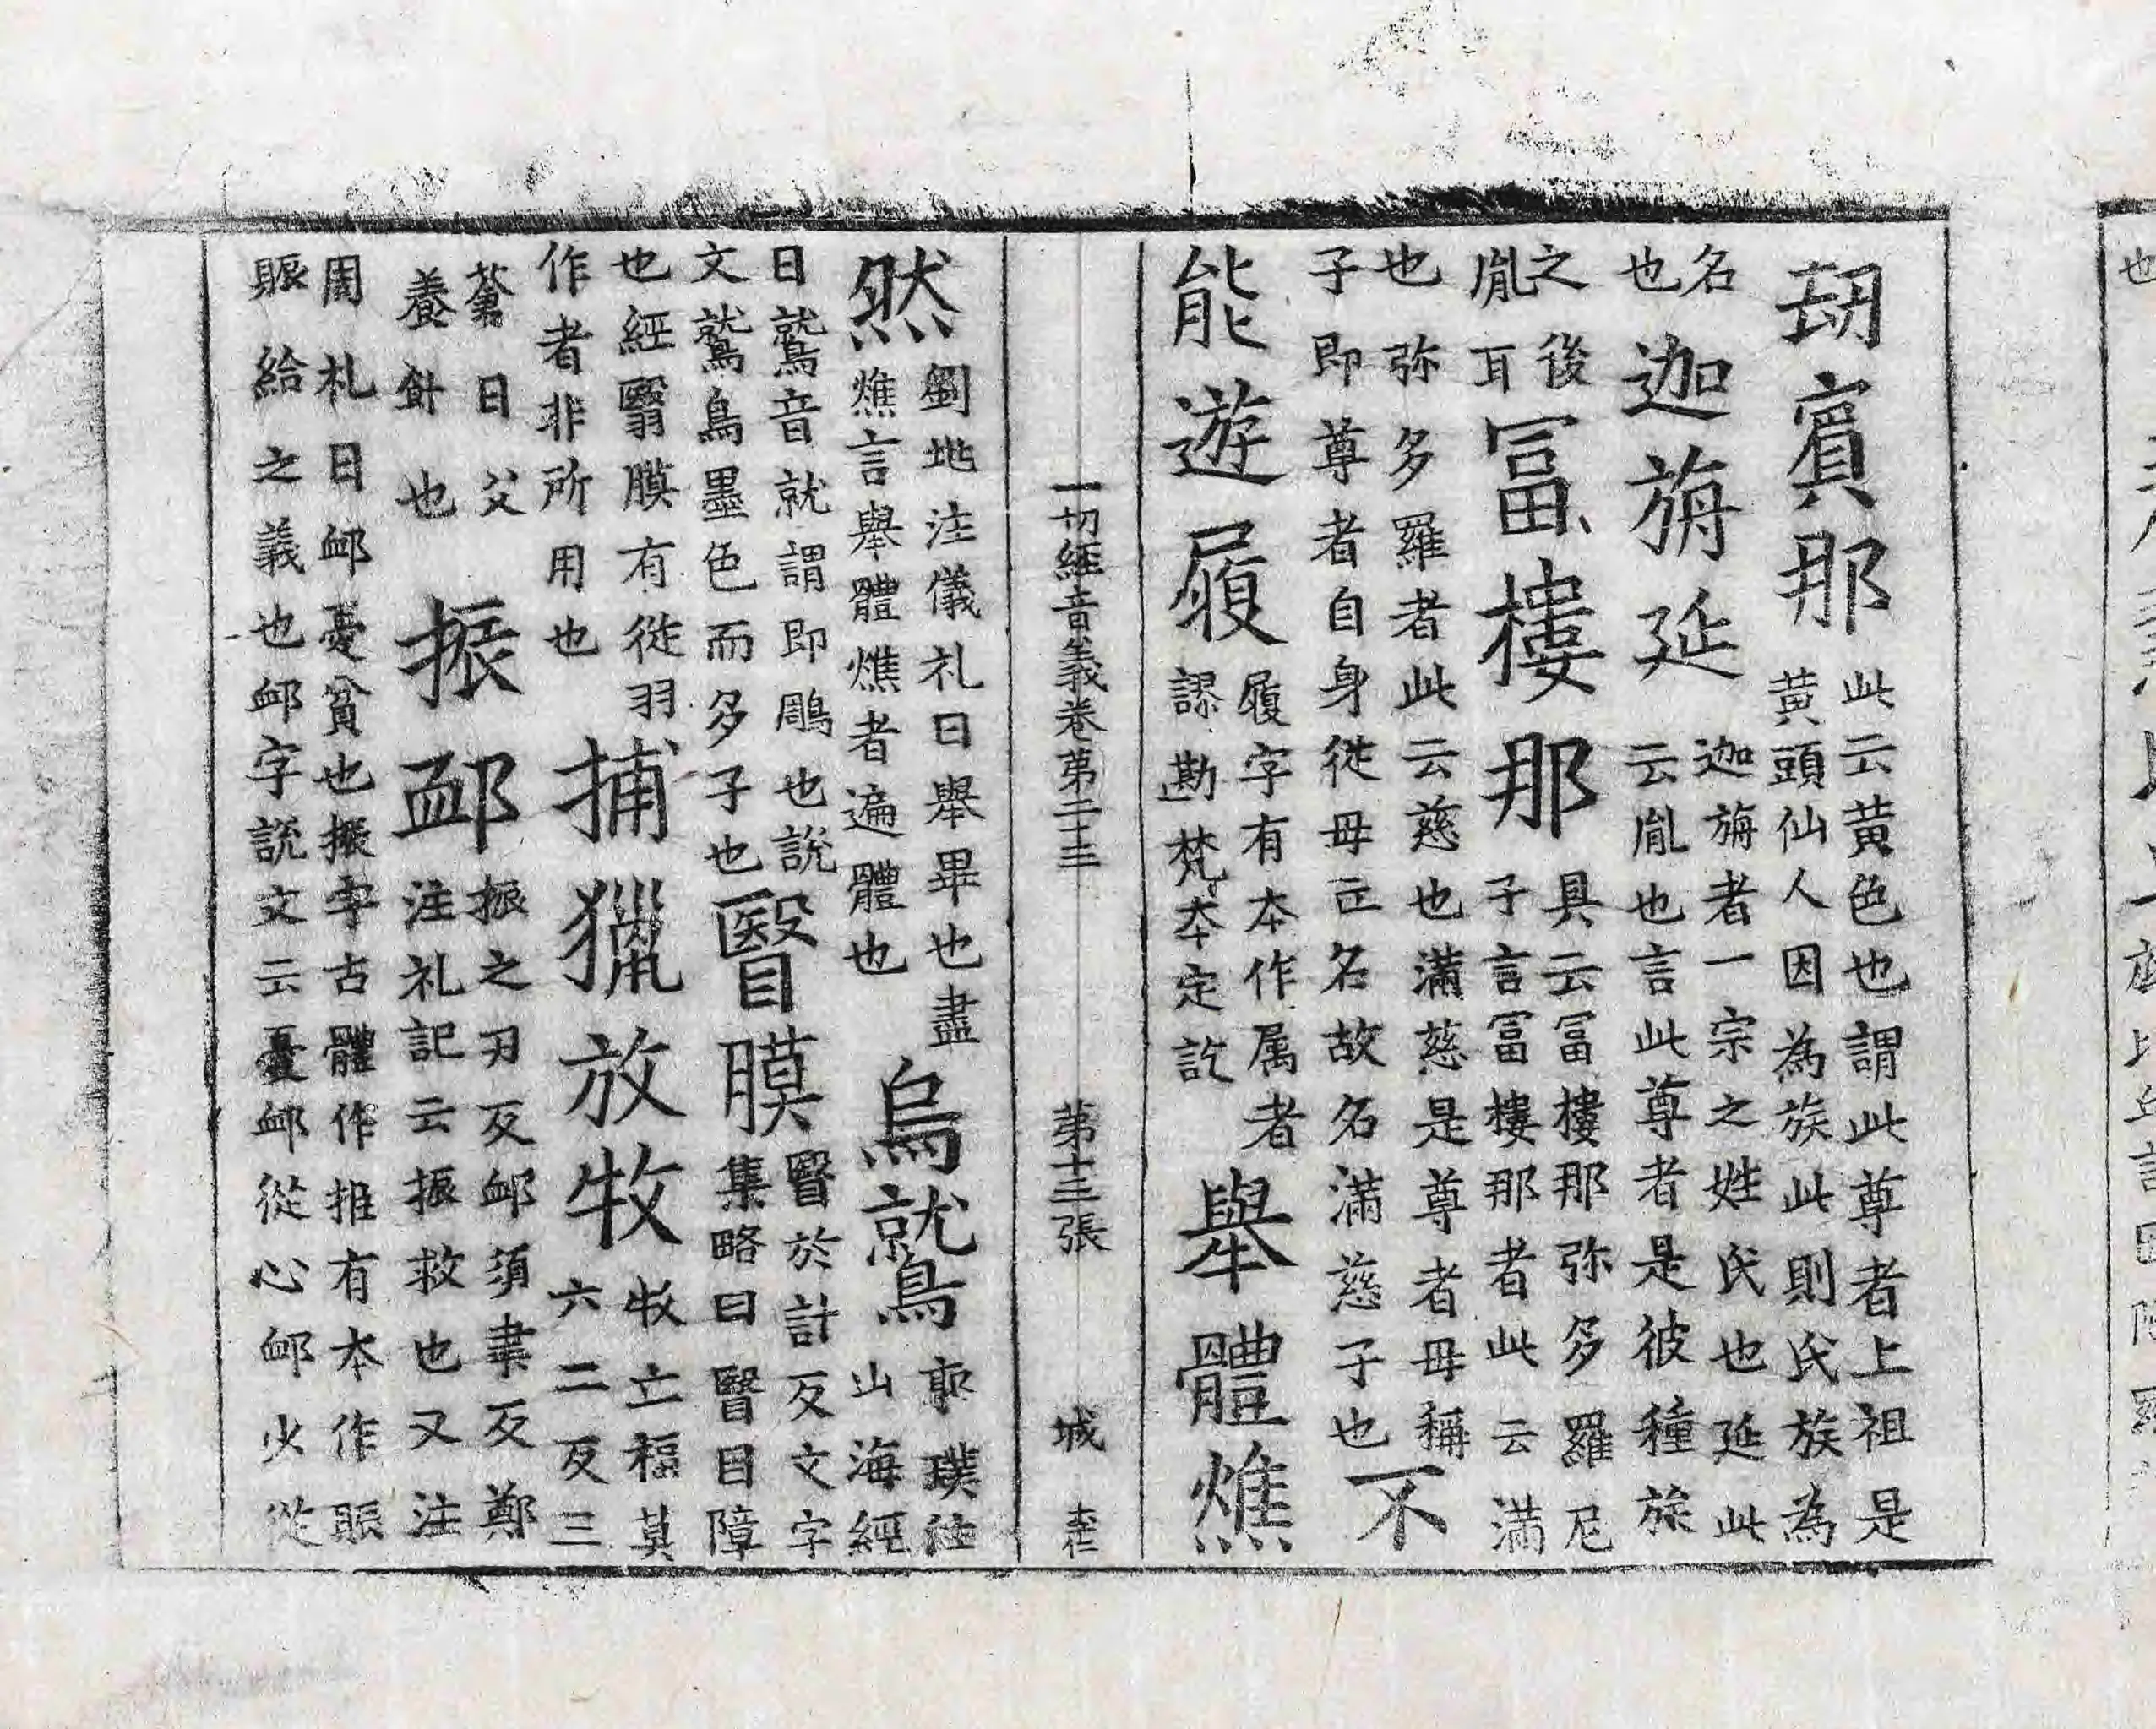 刧賓那此云黄色也謂此尊者上祖是黄頭仙人因為族此則氏族為
名也迦旃延迦旃者一宗之姓氏也延此云胤也言此尊者是彼種族
之後胤耳冨樓那具云冨樓那弥多羅尼子言冨樓那者此云滿
也弥多羅者此云慈也滿慈是尊者母稱子即尊者自身從母立名故名滿慈子也不
能遊履履字有本作属者謬勘梵本定訖舉體燋
一切經音義卷第二十三 第十三張 城
然劉地注儀礼曰舉畢也盡燋言舉體燋者遍體也烏鷲郭璞注山海經
曰鷲音就謂即鵰也說文鷲鳥墨色而多子也瞖膜瞖於計反文字集略曰瞖目障
也經翳膜有從羽作者非所用也捕獵放牧牧立福莫六二反三
蒼曰父養餅也振卹振之刃反卹須聿反鄭注礼記云振救也又注
周礼曰卹憂貧也振字古體作推有本作賑賑給之義也卹字說文云憂卹從心卹少從